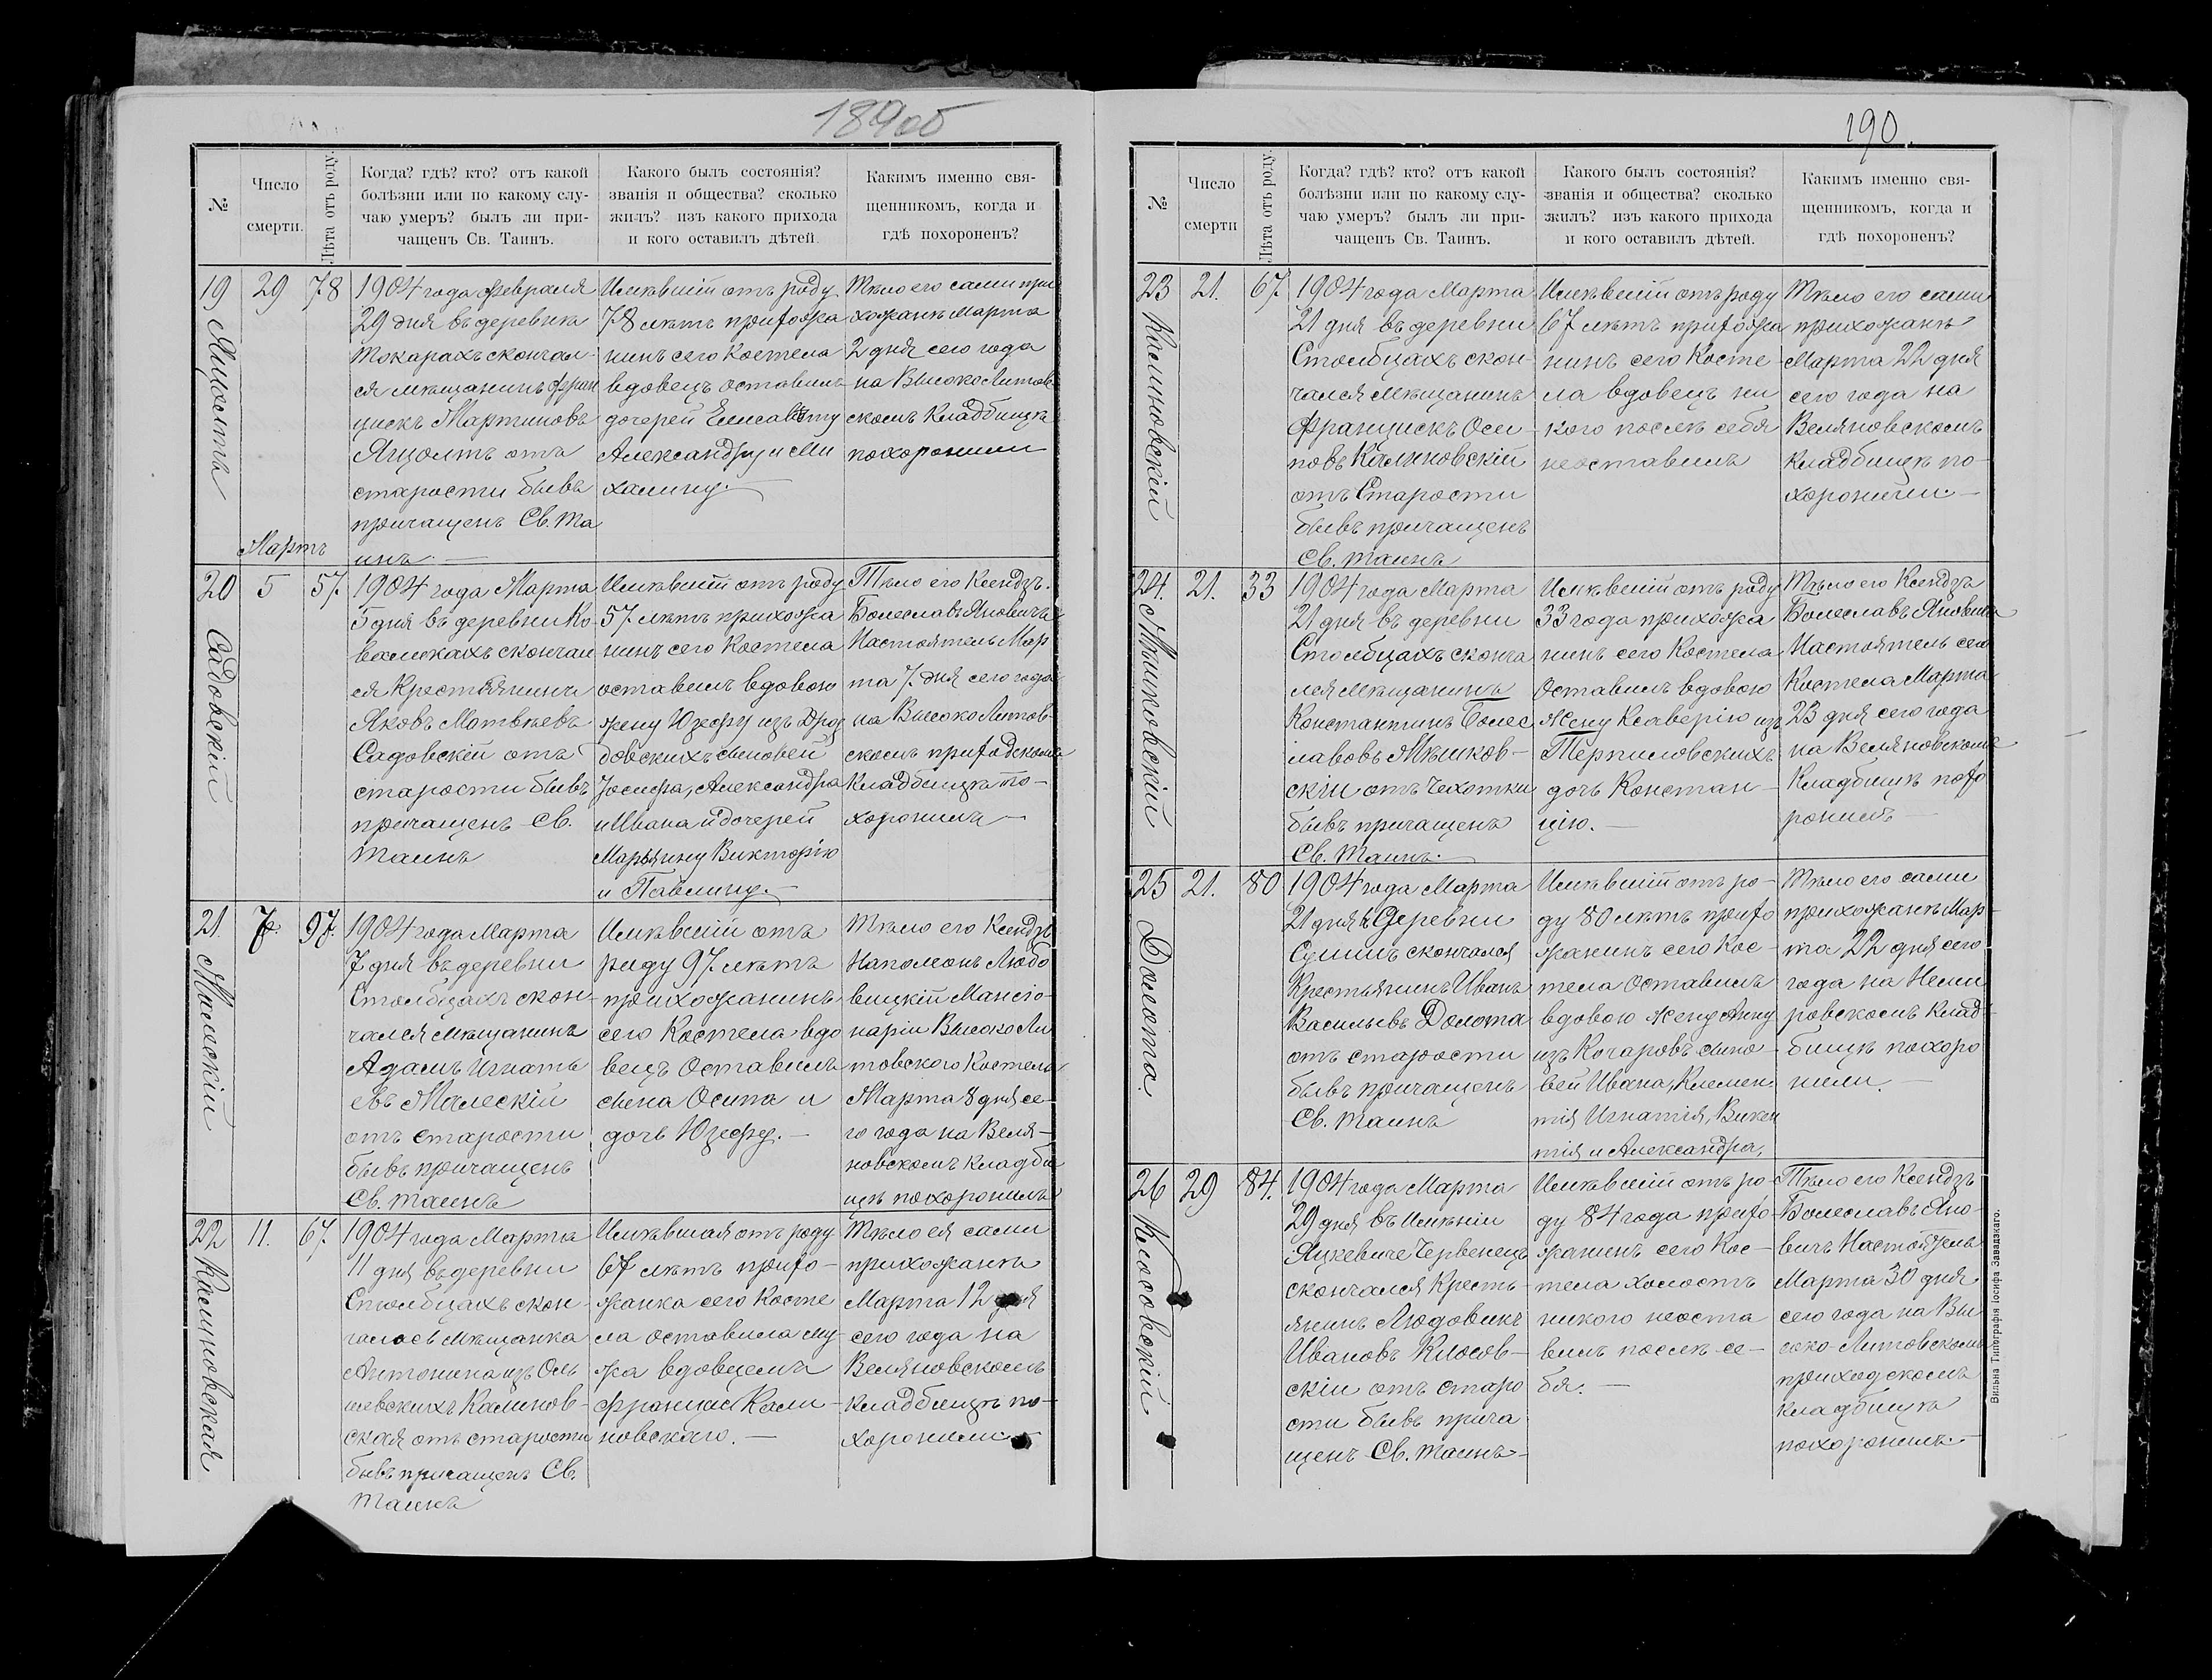 189об
№
Число
смерти.
Лѣта отъ роду.
Когда? гдѣ? кто? отъ какой
болѣзни или по какому слу-
чаю умеръ? былъ ли при-
чащенъ Св. Таинъ.
Какого былъ состоянія?
званія и общества? сколько
жилъ? изъ какого прихода
и кого оставилъ дѣтей.
Какимъ именно свя-
щенникомъ, когда и
гдѣ похороненъ?
19
29
78
1904 года Февраля
29 дня въ деревнѣ
Токарахъ скончал-
ся мѣщанинъ Фран
цискъ Мартиновъ
Яцолтъ отъ
старости бывъ
причащенъ Св. Та
инъ. —
Имѣвшій отъ роду
78 лѣтъ прихожа
нинъ сего Костела
вдовецъ оставилъ
дочерей Елисавѣту
Александру и Ми
халину. —
Тѣло его сами при
хожанѣ Марта
2 дня сего года
на ВысокоЛитов
скомъ Кладбищѣ
похоронили
Мартъ
20
Садовскій
5
57.
1904 года Марта
5 дня въ деревни Ко-
валикахъ скончал
ся Крестьянинъ
Яковъ Матвѣевъ
Садовскій отъ
старости бывъ
причащенъ Св.
Таинъ
Имѣвшій отъ роду
57 лѣтъ прихожа
нинъ сего Костела
оставилъ вдовою
жену Юзефу изъ Дроз
довскихъ сыновей
Іосифа, Александра
и Ивана и дочерей
Марьянну Викторію
и Павлину. —
Тѣло его Ксендзъ
Болеславъ Яновичъ
Настоятель Мар
та 7. дня сего года
на Высоко Литов-
скомъ приходскомъ
Кладбищѣ по-
хоронилъ —
21.
Малескій
7.
97.
1904 года Марта
7 дня въ деревни
Столбцахъ скон-
чался мѣщанинъ
Адамъ Игнатъ
евъ Малескій
отъ старости
бывъ причащенъ
Св. Таинъ
Имѣвшій отъ
роду 97. лѣтъ
прихожанинъ
сего Костела вдо
вецъ Оставилъ
сына Осипа и
дочь Юзефу. —
Тѣло его Ксендзъ
Наполеонъ Любо
вицкій Мансіо-
нарій Высоко Ли
товского Костела
Марта 8 дня се-
го года на Веля-
новскомъ кладби
щѣ похоронилъ
22
Калиновская
11.
67.
1904 года Марта
11 дня въ деревни
Столбцахъ скон-
чалась мѣщанка
Антонина изъ Оль
шевскихъ Калинов-
ская отъ старости
бывъ причащенъ Св.
Таинъ
Имѣвшая отъ роду
67 лѣтъ прихо-
жанка сего Косте
ла оставила му
жа вдовцемъ
Францис Кали-
новскаго. —
Тѣло ея сами
прихожанѣ
Марта 12 дня
сего года на
Веляновскомъ
Кладбищѣ по-
хоронили
190.
№
Число
смерти
Лѣта отъ роду.
Когда? гдѣ? кто? отъ какой
болѣзни или по какому слу-
чаю умеръ? былъ ли при-
чащенъ Св. Таинъ.
Какого былъ состоянія?
званія и общества? сколько
жилъ? изъ какого прихода
и кого оставилъ дѣтей.
Какимъ именно свя-
щенникомъ, когда и
гдѣ похороненъ?
23
Калиновскій
21.
67.
1904 года Марта
21 дня въ деревни
Столбцахъ скон-
чался мѣщанинъ
Францискъ Оси-
повъ Калиновскій
отъ Старости
бывъ причащенъ
Св. Таинъ
Имѣвшій отъ роду
67 лѣтъ прихожа
нинъ сего Косте-
ла вдовецъ ни
кого послѣ себя
неоставилъ
Тѣло его сами
прихожанѣ
Марта 22 дня
сего года на
Веляновскомъ
Кладбищѣ по-
хоронили. —
24.
21.
33
1904 года Марта
21 дня въ деревни
Столбцахъ сконча
лся мѣщанинъ
Константинъ Болес
лавовъ Мѣшков-
скій отъ Чехотки
бывъ причащенъ
Св. Таинъ. —
Имѣвшій отъ роду
33 года прихожа
нинъ сего Костела
Оставилъ вдовою
Жену Ксаверію изъ
Терпиловскихъ
дочь Констан-
цію. —
Тѣло его Ксендзъ
Болеславъ Яновичъ
Настоятель сего
Костела Марта
23 дня сего года
на Веляновскомъ
Кладбищѣ похо
ронилъ —
25
Долота.
21.
80
1904 года Марта
21 дня въ Деревни
Сулимъ скончался
Крестьянинъ Иванъ
Васильевъ Долота
отъ старости
бывъ причащенъ
Св. Таинъ
Имѣвшій отъ ро-
ду 80 лѣтъ прихо
жанинъ сего Кос-
тела Оставилъ
вдовою Жену Анну
изъ Кочаровъ сыно-
вей Ивана, Клемен
тія Игнатія, Викен
тія и Александра,
Тѣло его сами
прихожанѣ Мар-
та 22 дня сего
года на Неми
ровскомъ Клад-
бищѣ похоро
нили. —
26
Клосовскій
29
84.
1904 года Марта
29 дня въ Имѣніи
Яцкевиче Червенецъ
скончался Кресть-
янинъ Людовикъ
Ивановъ Клосов-
скій отъ старо
сти бывъ прича
щенъ Св. Таинъ-
Имѣвшій отъ ро-
ду 84 года прихо-
жанинъ сего Кос-
тела холостъ
никого неоста
вилъ послѣ се-
бя. —
Тѣло его Ксендзъ
Болеславъ Яно-
вичъ Настоятель
Марта 30 дня
сего года на Вы
соко-Литовскомъ
приходскомъ
кладбищѣ
похоронилъ
Вильна Типографія Іосифа Завадзкаго.